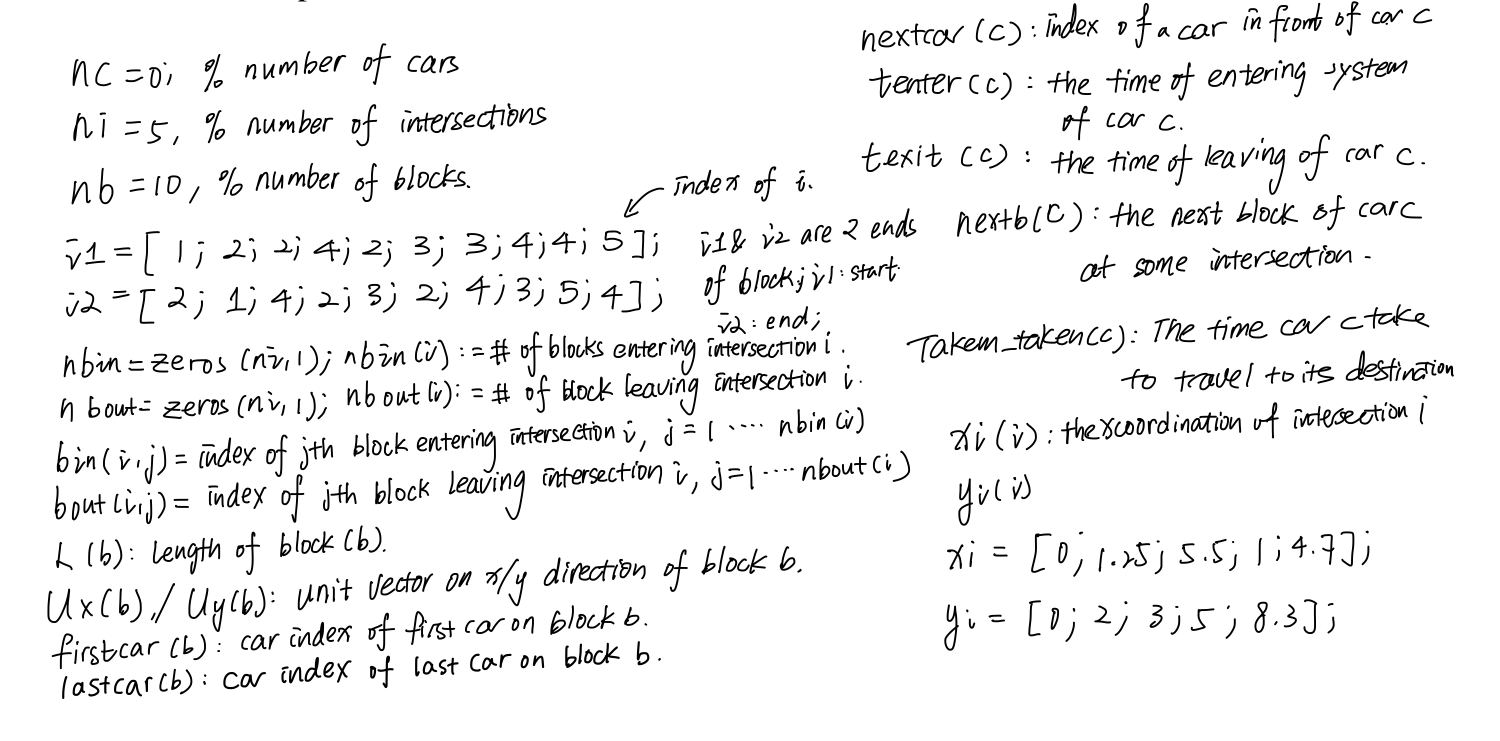 nc = 0; % number of cars
ni = 5, % number of intersections
nb = 10, % number of blocks.
index of i.
i1 = [ 1; 2; 2; 4; 2; 3; 3; 4; 4; 5 ]; i1 & i2 are 2 ends
i2 = [ 2; 1; 4; 2; 3; 2; 4; 3; 5; 4 ]; of block; i1: start
i2: end;
nbin = zeros (ni, 1); nbin (i) := # of blocks entering intersection i.
nbout = zeros (ni, 1); nbout (i): = # of block leaving intersection i.
bin(i,j) = index of jth block entering intersection i, j = 1 ···· nbin (i)
bout(i,j) = index of j-th block leaving intersection i, j=1 ···· nbout (i)
L (b): length of block (b).
Ux(b), / Uy(b): unit vector on x/y direction of block b.
firstcar (b): car index of first car on block b.
lastcar (b): car index of last car on block b.
nextcar (c): index of a car in front of car c
tenter (c): the time of entering system
of car c.
texit (c): the time of leaving of car c.
nextb(c): the next block of car c
at some intersection.
Takem_taken(c): The time car c take
to travel to its destination
xi (i): the x coordination of intesection i
yi(i)
xi = [0; 1.25; 5.5; 1; 4.7];
yi = [0; 2; 3; 5; 8.3];